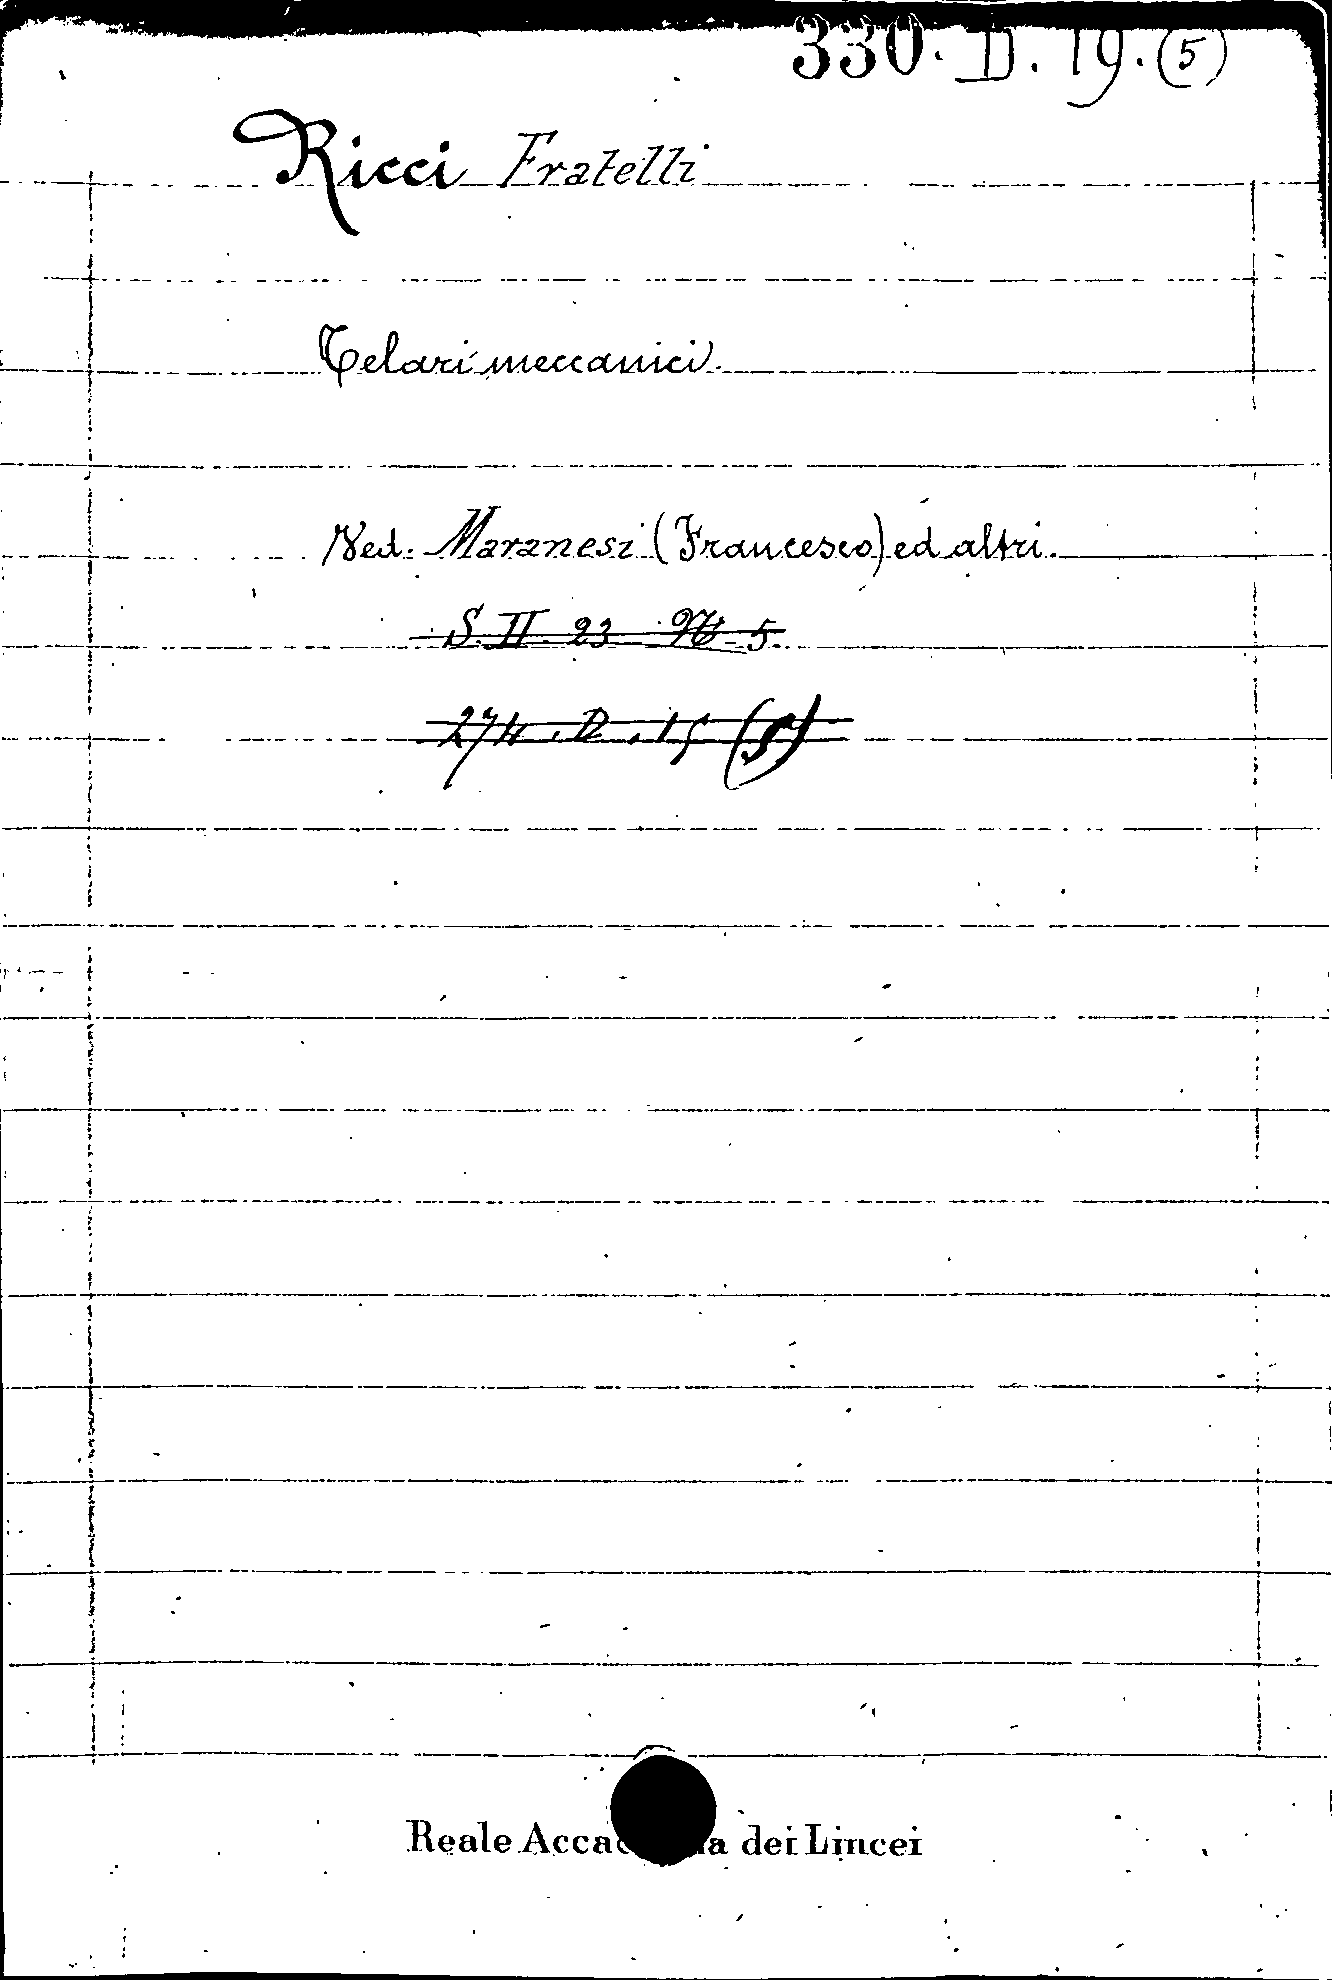 330. D. 19. (5)
Ricci Fratelli
Telari meccanici.
Ved. Maranesi (Francesco) ed altri.
S. II. 23 5.
274. D. 15 (5)
Reale Accademia dei Lincei